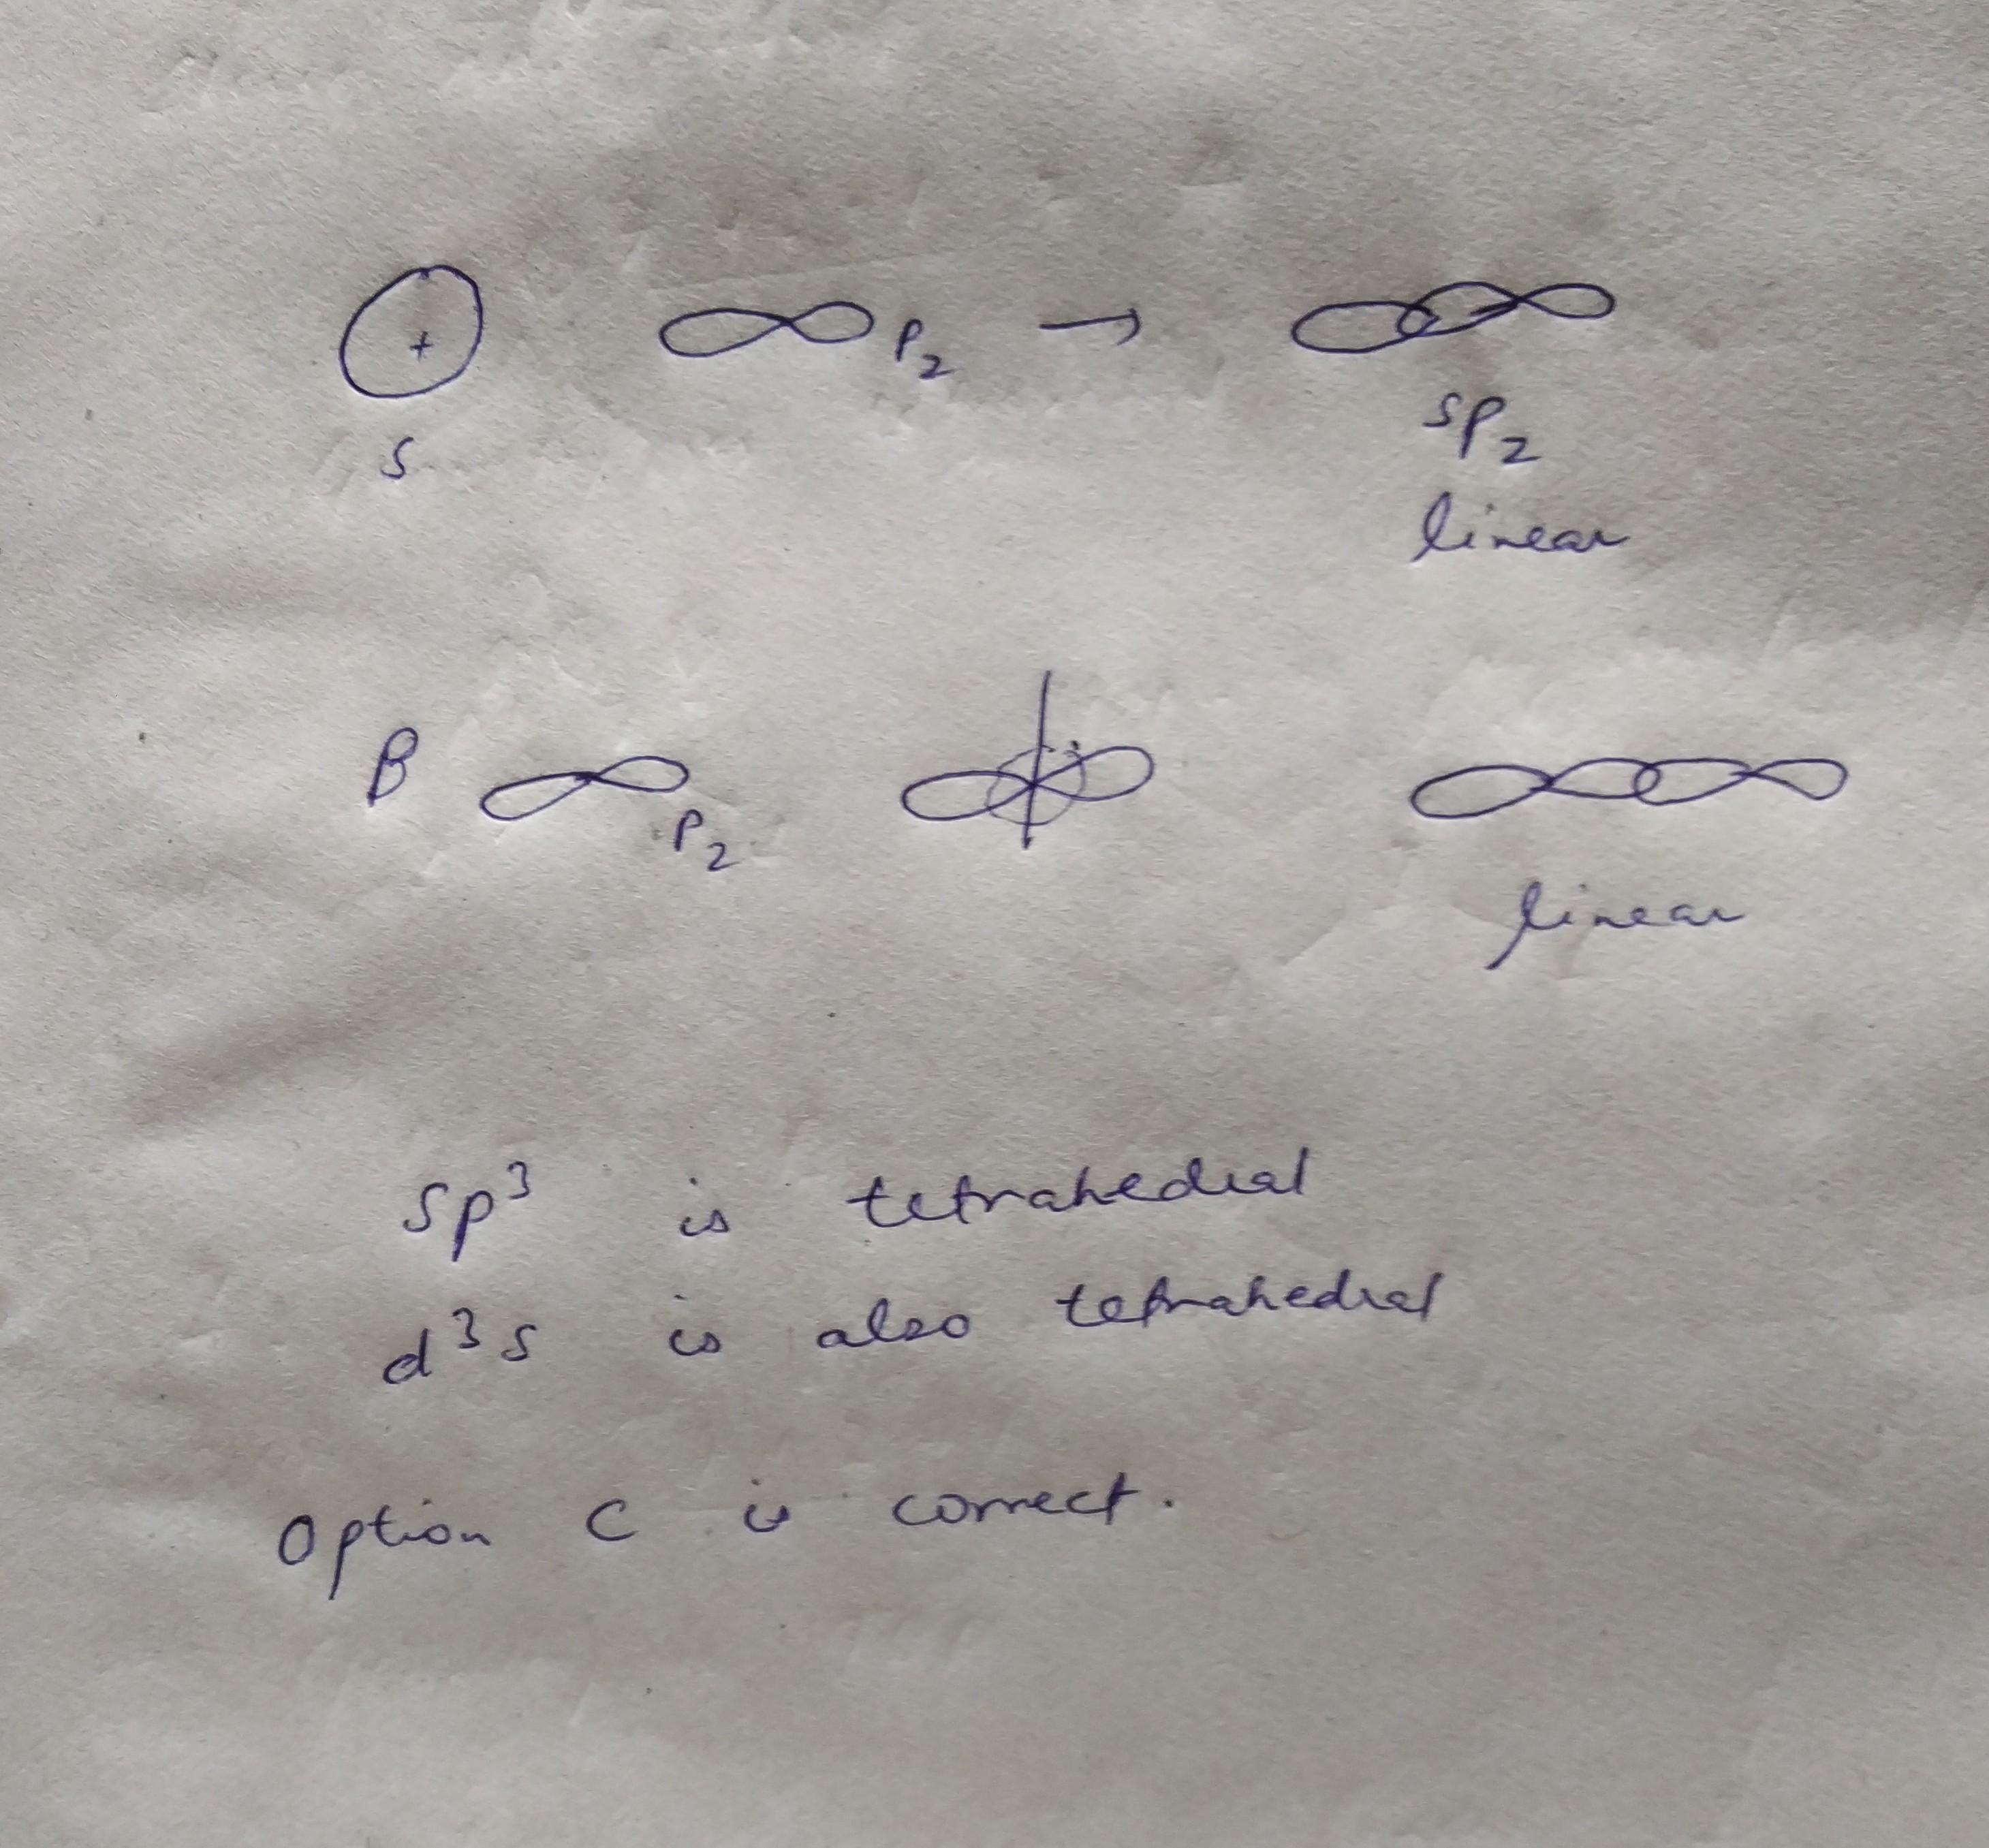 + P₂ →
s
sP₂
linear
B P₂
linear
sp³ is tetrahedral
d³s is also tetrahedral
Option C is correct.